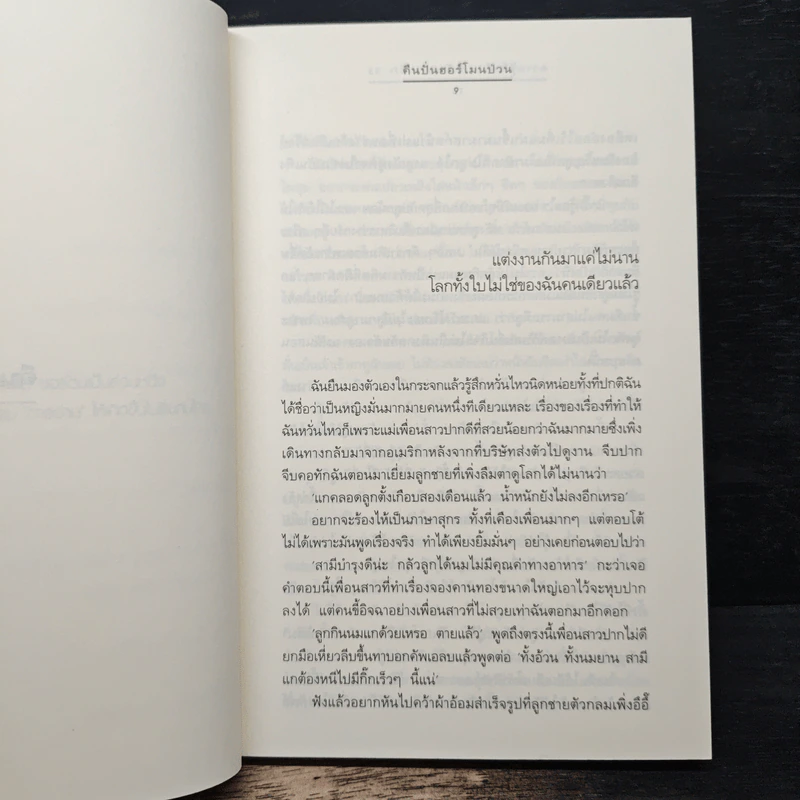 ตีนปั่นฮอร์โมนป่วน
9
แต่งงานกันมาแค่ไม่นาน
โลกทั้งใบไม่ใช่ของฉันคนเดียวแล้ว
ฉันยืนมองตัวเองในกระจกแล้วรู้สึกหวั่นไหวนิดหน่อยทั้งที่ปกติฉัน
ได้ชื่อว่าเป็นหญิงมั่นมากมายคนหนึ่งทีเดียวแหละ เรื่องของเรื่องที่ทำให้
ฉันหวั่นไหวก็เพราะแม่เพื่อนสาวปากดีที่สวยน้อยกว่าฉันมากมายซึ่งเพิ่ง
เดินทางกลับมาจากอเมริกาหลังจากที่บริษัทส่งตัวไปดูงาน จีบปาก
จีบคอทักฉันตอนมาเยี่ยมลูกชายที่เพิ่งลืมตาดูโลกได้ไม่นานว่า
'แกคลอดลูกตั้งเกือบสองเดือนแล้ว น้ำหนักยังไม่ลงอีกเหรอ'
อยากจะร้องไห้เป็นภาษาสุกร ทั้งที่เคืองเพื่อนมากๆ แต่ตอบโต้
ไม่ได้เพราะมันพูดเรื่องจริง ทำได้เพียงยิ้มมั่นๆ อย่างเคยก่อนตอบไปว่า
'สามีบำรุงดีน่ะ กลัวลูกได้นมไม่มีคุณค่าทางอาหาร' กะว่าเจอ
คำตอบนี้เพื่อนสาวที่ทำเรื่องจองคานทองขนาดใหญ่เอาไว้จะหุบปาก
ลงได้ แต่คนขี้อิจฉาอย่างเพื่อนสาวที่ไม่สวยเท่าฉันตอกมาอีกดอก
'ลูกกินนมแกด้วยเหรอ ตายแล้ว' พูดถึงตรงนี้เพื่อนสาวปากไม่ดี
ยกมือเหี่ยวลีบขึ้นทาบอกคัพเอลบแล้วพูดต่อ 'ทั้งอ้วน ทั้งนมยาน สามี
แกต้องหนีไปมีกิ๊กเร็วๆ นี้แน่'
ฟังแล้วอยากหันไปคว้าผ้าอ้อมสำเร็จรูปที่ลูกชายตัวกลมเพิ่งอึอื๊